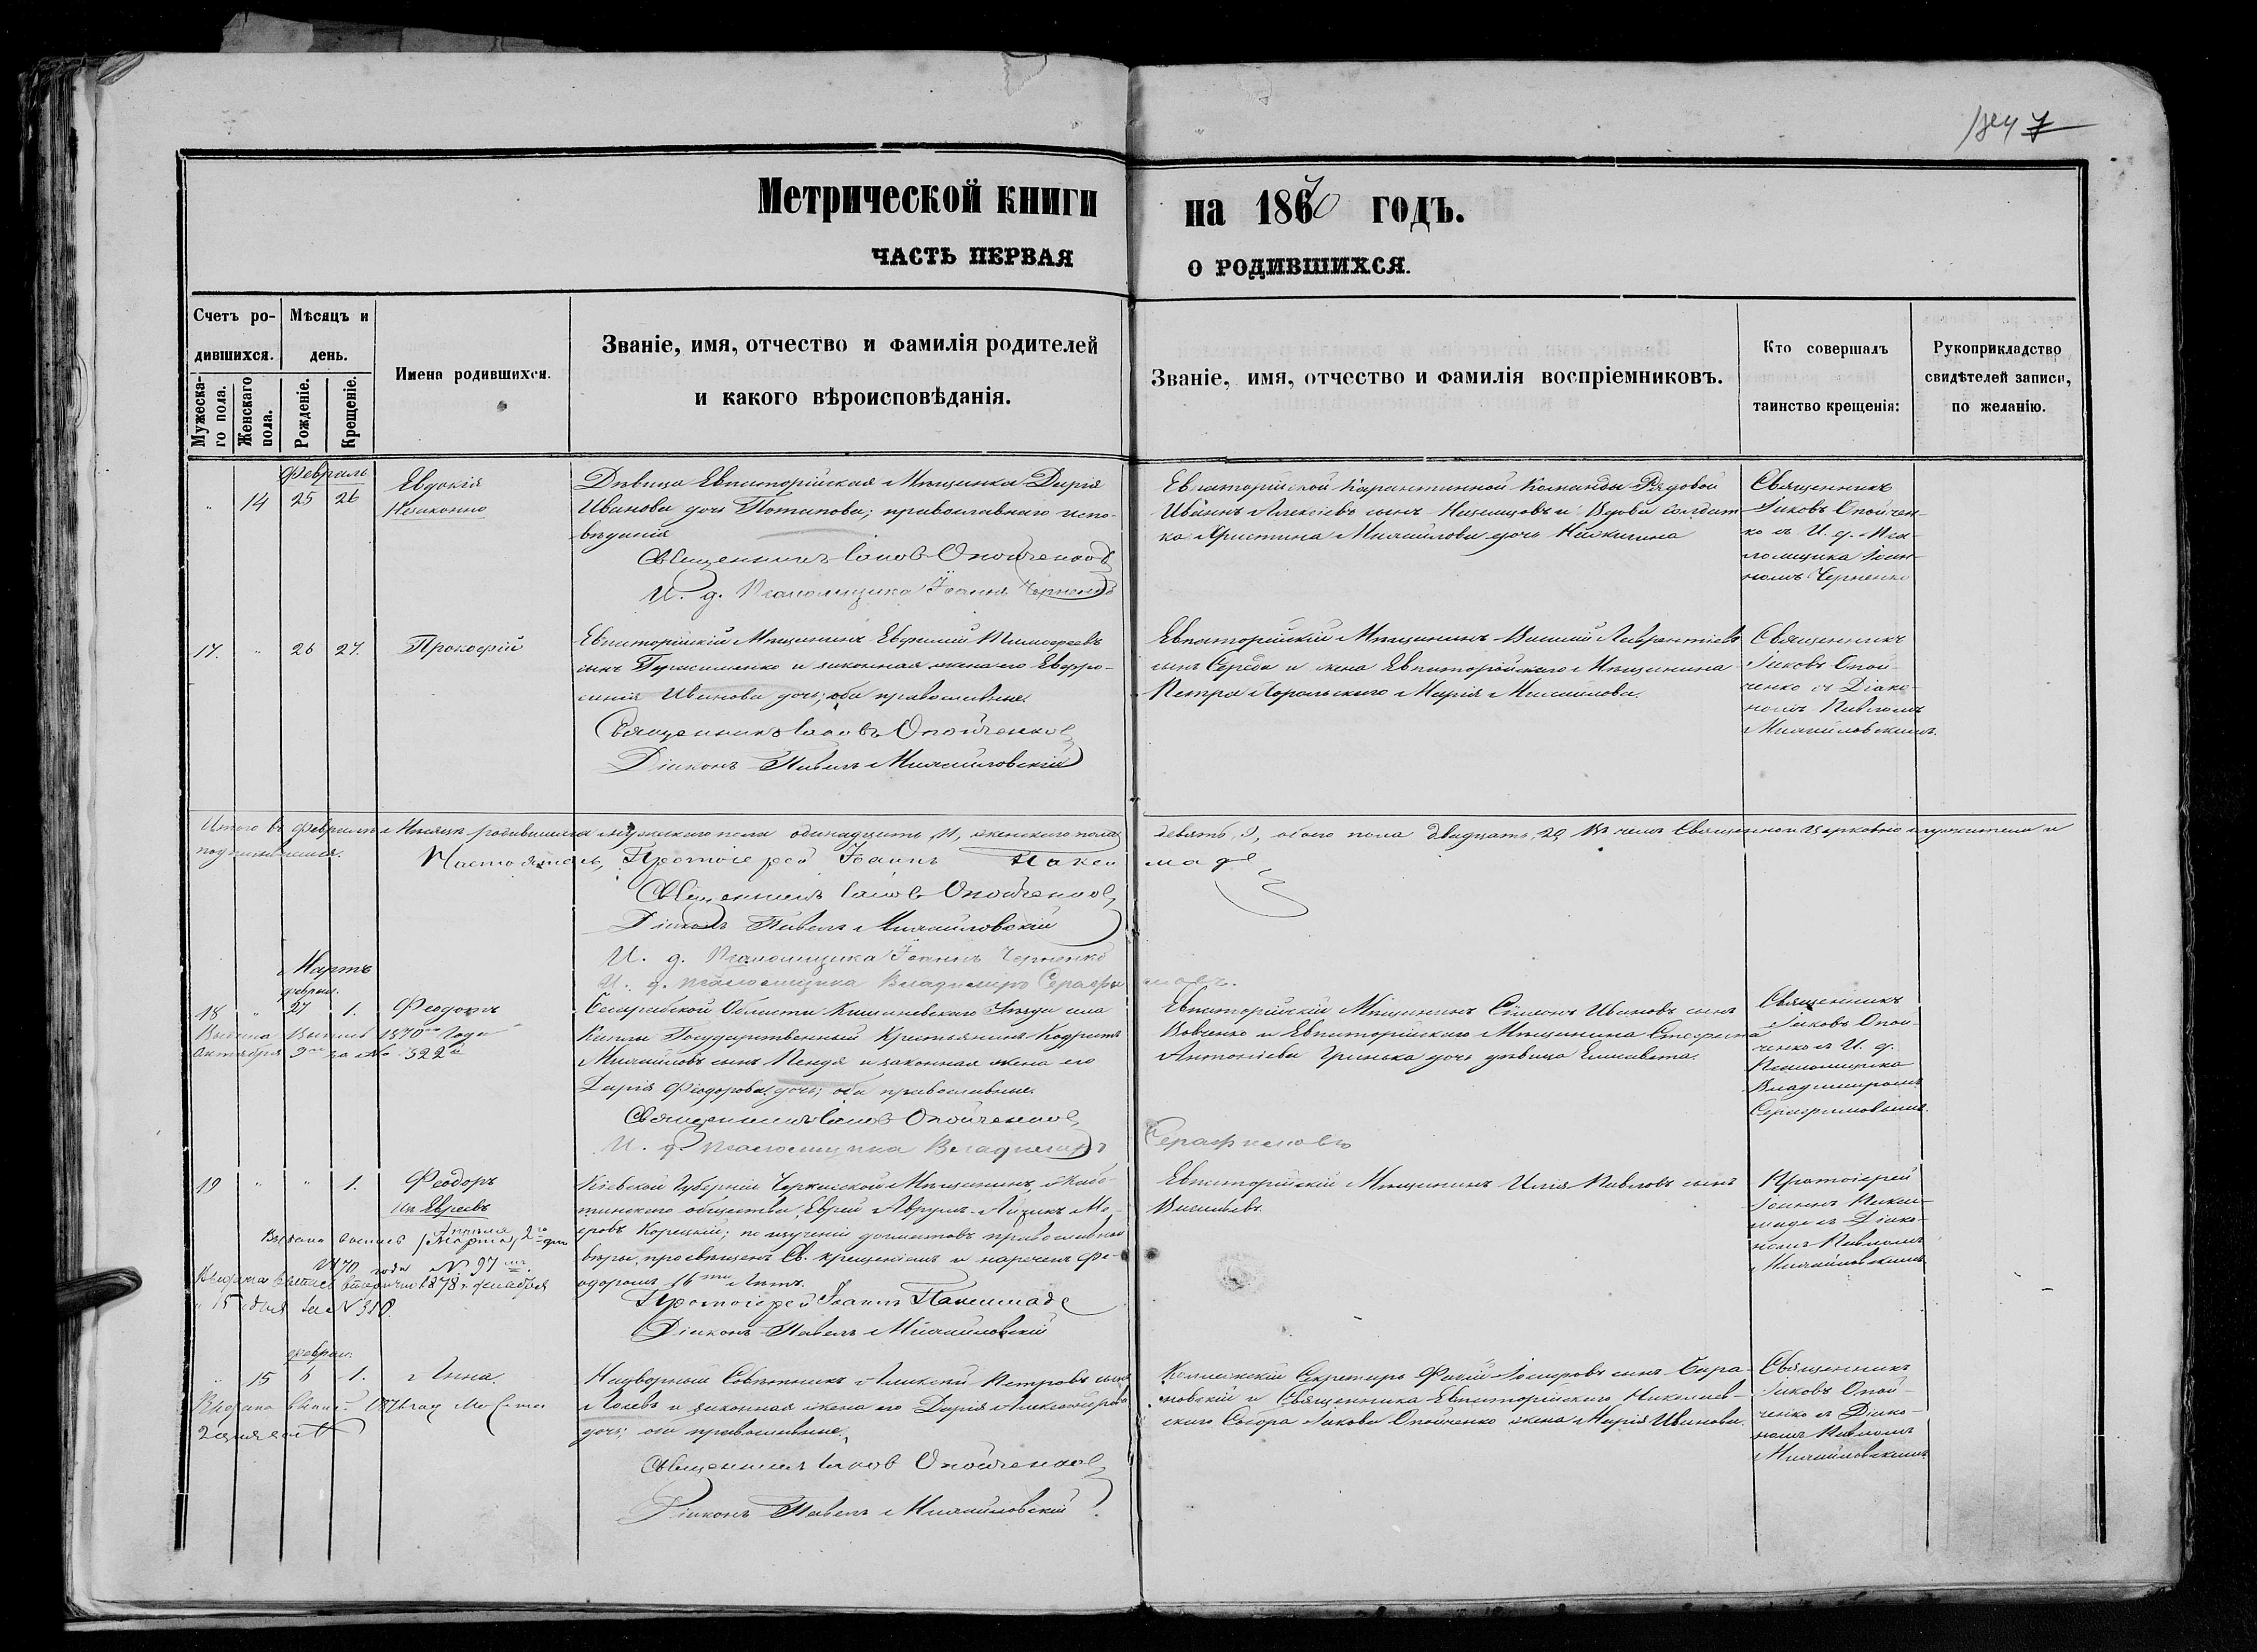 7
Метрической книги на 1870 годъ.
ЧАСТЬ ПЕРВАЯ О РОДИВШИХСЯ.
Счетъ ро-
дившихся.
Мужеска-
го пола.
Женскаго
пола.
Мѣсяцъ и
день.
Рожденіе.
Крещеніе.
Имена родившихся.
Званіе, имя, отчество и фамилія родителей
и какого вѣроисповѣданія.
Званіе, имя, отчество и фамилія воспріемниковъ.
Кто совершалъ
таинство крещенія:
Рукоприкладство
свидѣтелей записи,
по желанію.
Февраль
" 14 25 26
Евдокія
Незаконно
Дѣвица Евпаторійская Мѣщанка Дарія
Иванова дочь Потапова; православнаго испо-
вѣданія
Священникъ Іаковъ Опойченко
И. д. Псаломщика Іоаннъ Черненко
Евпаторійской Карантинной Команды Рядовой
Иванъ Алексіевъ сынъ и Вдова Солдат
ка Христина Михайлова дочь
Священникъ
Іаковъ Опойчен-
ко съ И. д. Пса-
ломщика Іоан-
номъ Черненко
17. " 26 27. Прокофій
Евпаторійскій Мѣщанинъ Евфимій Тимофеевъ
сынъ Герасименко и законная жена его Евфро-
синія Иванова дочь; оба православные.
Священникъ Іаковъ Опойченко
Діаконъ Павелъ Михайловскій
Евпаторійскій Мѣщанинъ Василій Лаврентіевъ
сынъ Середа и жена Евпаторійскаго Мѣщанина
Петра Марія Михайлова.
Священникъ
Іаковъ Опой-
ченко съ Діако-
номъ Павломъ
Михайловскимъ.
Итого въ Февралѣ Мѣсяцѣ родившихся мужескаго пола одинадцать, 11, женскаго пола девять, 9, обоего пола двадцать, 20, въ чемъ Священно и Церковно служители и
подписываемся.
Настоятель, Протоіерей Іоаннъ Пакси маде
Священникъ Іаковъ Опойченко
Діаконъ Павелъ Михайловскій
И. д. Псаломщика Іоаннъ Черненко
И. д. Псаломщика Владиміръ Серафи мовъ.
Мартъ
феврал.
18 " 27 1. Феодоръ
Выдана Выпись 1870го Года
Октября 9го за No 322м
Бессарабской Области Кишиневскаго Уѣзда села
Государственный Крестьянинъ Кодратъ
Михайловъ сынъ и законная жена его
Дарія Феодорова дочь; оба православные.
Священникъ Іаковъ Опойченко
И. д. Псаломщика Владиміръ Серафимовъ
Евпаторійскій Мѣщанинъ Симеонъ Ивановъ сынъ
Вовченко и Евпаторійскаго Мѣщанина Стефана
Антоніева Гринька дочь дѣвица Елисавета.
Священникъ
Іаковъ Опой-
ченко съ И. д.
Псаломщика
Владиміромъ
Серафимовымъ.
19 " " 1. Феодоръ
изъ Евреевъ
Выдана выпись Апрѣля 2го дня
1870 года N 97
15 дня за N 310.
Кіевской Губерніи Черкасской Мѣщанинъ,
тинскаго общества, Еврей Аврумъ-Айзикъ Мо-
Корецкій; по изученіи догматовъ православной
вѣры, просвѣщенъ Св. крещеніемъ и нареченъ Фе-
одоромъ 16ти Лѣтъ.
Протоіерей Іоаннъ Паксимаде
Діаконъ Павелъ Михайловскій
Евпаторійскій Мѣщанинъ Илія Павловъ сынъ
Протоіерей
Іоаннъ Пакси-
маде съ Діако-
номъ Павломъ
Михайловскимъ.
феврал.
" 15 6 1. Анна.
Надворный Совѣтникъ Алексѣй Петровъ сынъ
и законная жена его Дарія Александрова
дочь; оба православные.
Священникъ Іаковъ Опойченко
Діаконъ Павелъ Михайловскій
Коллежскій Секретарь
и Священника Евпаторійскаго Николаев-
скаго Собора Іакова Опойченко жена Марія Иванова.
Священникъ
Іаковъ Опой-
ченко съ Діако-
номъ Павломъ
Михайловскимъ.